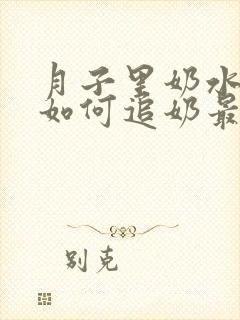 月子里奶水
如何追奶最
别克